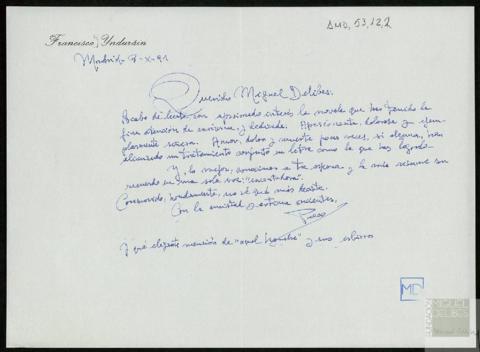 AMD, 53, 12, 2
Francisco Ynduráin
Madrid 8-X-91
Querido Miguel Delibes:
Acabo de leerte con apasionado interés la novela que has tenido la
fina atención de enviarme y dedicada. Apasionante, dolorosa y
sincera. Amor, dolor y muerte pocas veces, si alguna, han
alcanzado un tratamiento conjunto en letra como la que has logrado.
Y, lo mejor, conocimos a tu esposa, y la mía resume su
recuerdo en una sola voz: "encantadora".
Conmovido, hondamente, no sé qué más decirte.
Con la amistad y estima crecientes.
Paco
Y qué elegante mención de "aquel hombre" y sus esbirros
MD
FUNDACIÓN
MIGUEL
DELIBES